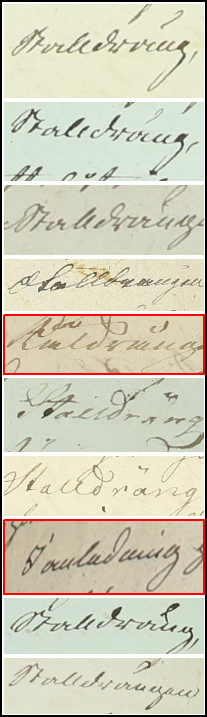 Stalldräng,
Stalldräng,
Stalldräng
Stalldrängen
Stalldräng
Stalldräng
Anledning
Stalldräng,
Stalldrängen